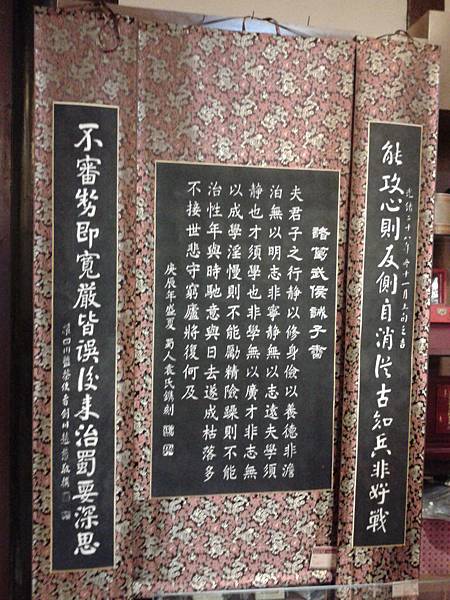 能攻心則反側自消從古知兵非好戰
光緒二十八年冬十一月上旬之吉
諸葛武侯誡子書
夫君子之行静以修身儉以養德非澹
泊無以明志非寧静無以志遠夫學須
静也才須學也非學無以廣才非志無
以成學淫慢則不能勵精險躁則不能
治性年與時馳意與日去遂成枯落多
不接世悲守窮廬將復何及
庚辰年盛夏 蜀人袁氏鐫刻
不審勢即寬嚴皆誤後來治蜀要深思
權四川鹽茶使者劍川趙藩敬撰